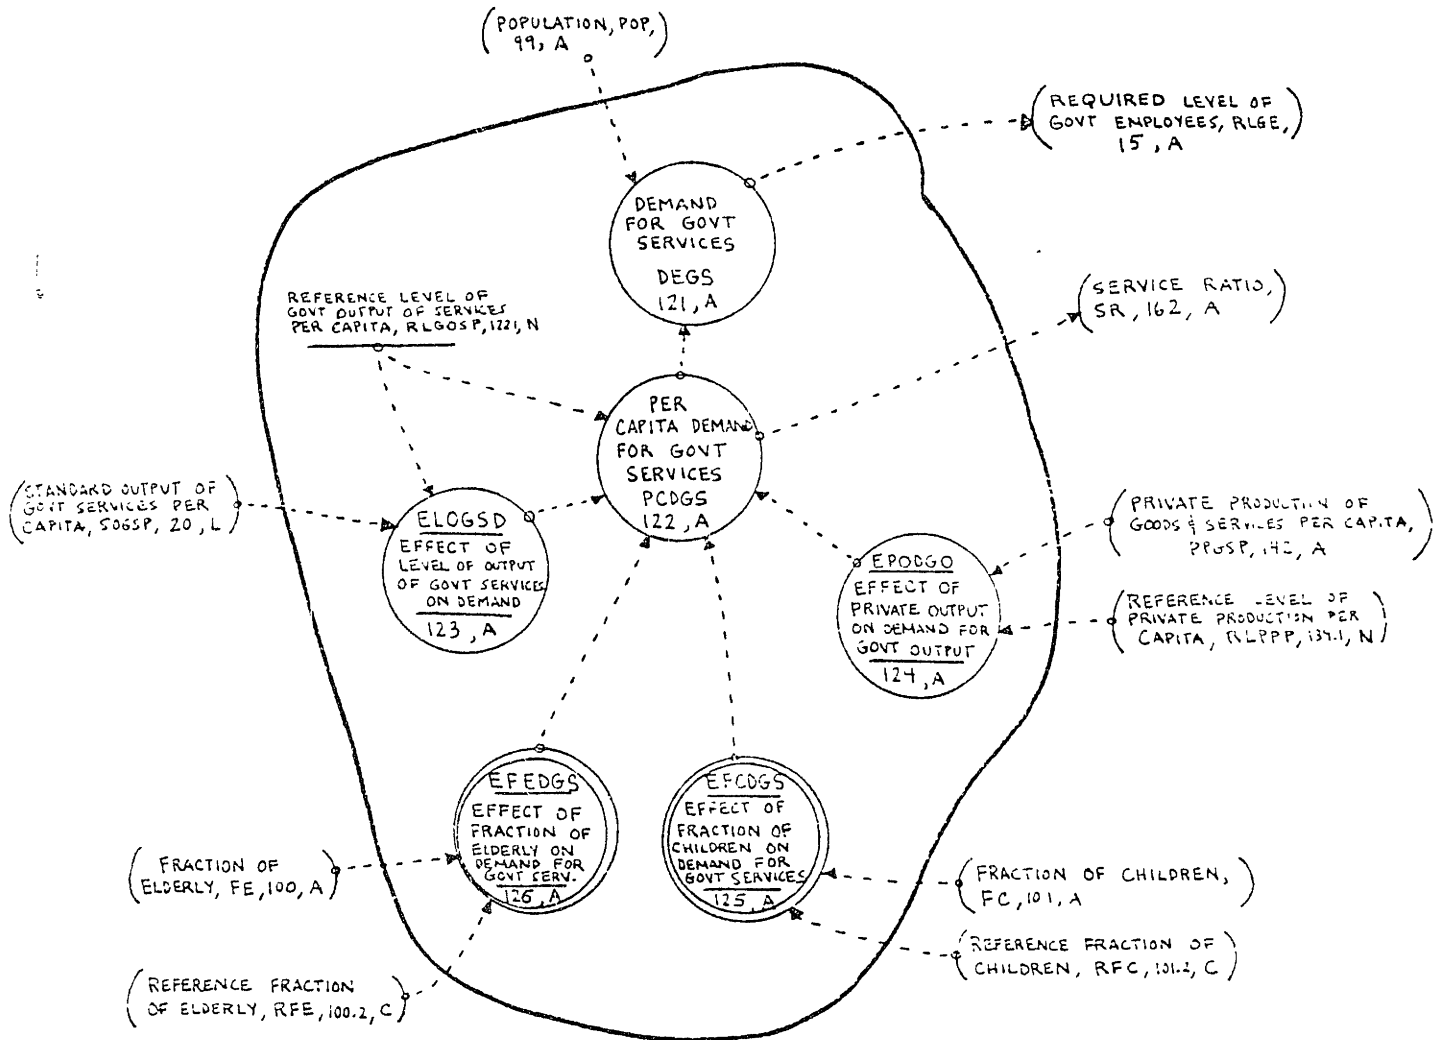 (POPULATION, POP,
99, A)
(REQUIRED LEVEL OF
GOVT EMPLOYEES, RLGE,
15, A)
DEMAND
FOR GOVT
SERVICES
DEGS
121, A
REFERENCE LEVEL OF
GOVT OUTPUT OF SERVICES
PER CAPITA, RLGOSP, 122.1, N
(SERVICE RATIO,
SR, 162, A)
PER
CAPITA DEMAND
FOR GOVT
SERVICES
PCDGS
122, A
(STANDARD OUTPUT OF
GOVT SERVICES PER
CAPITA, SOGSP, 20, L)
ELOGSD
EFFECT OF
LEVEL OF OUTPUT
OF GOVT SERVICES
ON DEMAND
123, A
EPODGO
EFFECT OF
PRIVATE OUTPUT
ON DEMAND FOR
GOVT OUTPUT
124, A
(PRIVATE PRODUCTION OF
GOODS & SERVICES PER CAPITA,
PPGSP, 142, A)
(REFERENCE LEVEL OF
PRIVATE PRODUCTION PER
CAPITA, RLPPP, N)
EFEDGS
EFFECT OF
FRACTION OF
ELDERLY ON
DEMAND FOR
GOVT SERV.
126, A
EFCDGS
EFFECT OF
FRACTION OF
CHILDREN ON
DEMAND FOR
GOVT SERVICES
125, A
(FRACTION OF
ELDERLY, FE, 100, A)
(FRACTION OF CHILDREN,
FC, 101, A)
(REFERENCE FRACTION OF
CHILDREN, RFC, 101.2, C)
(REFERENCE FRACTION
OF ELDERLY, RFE, 100.2, C)